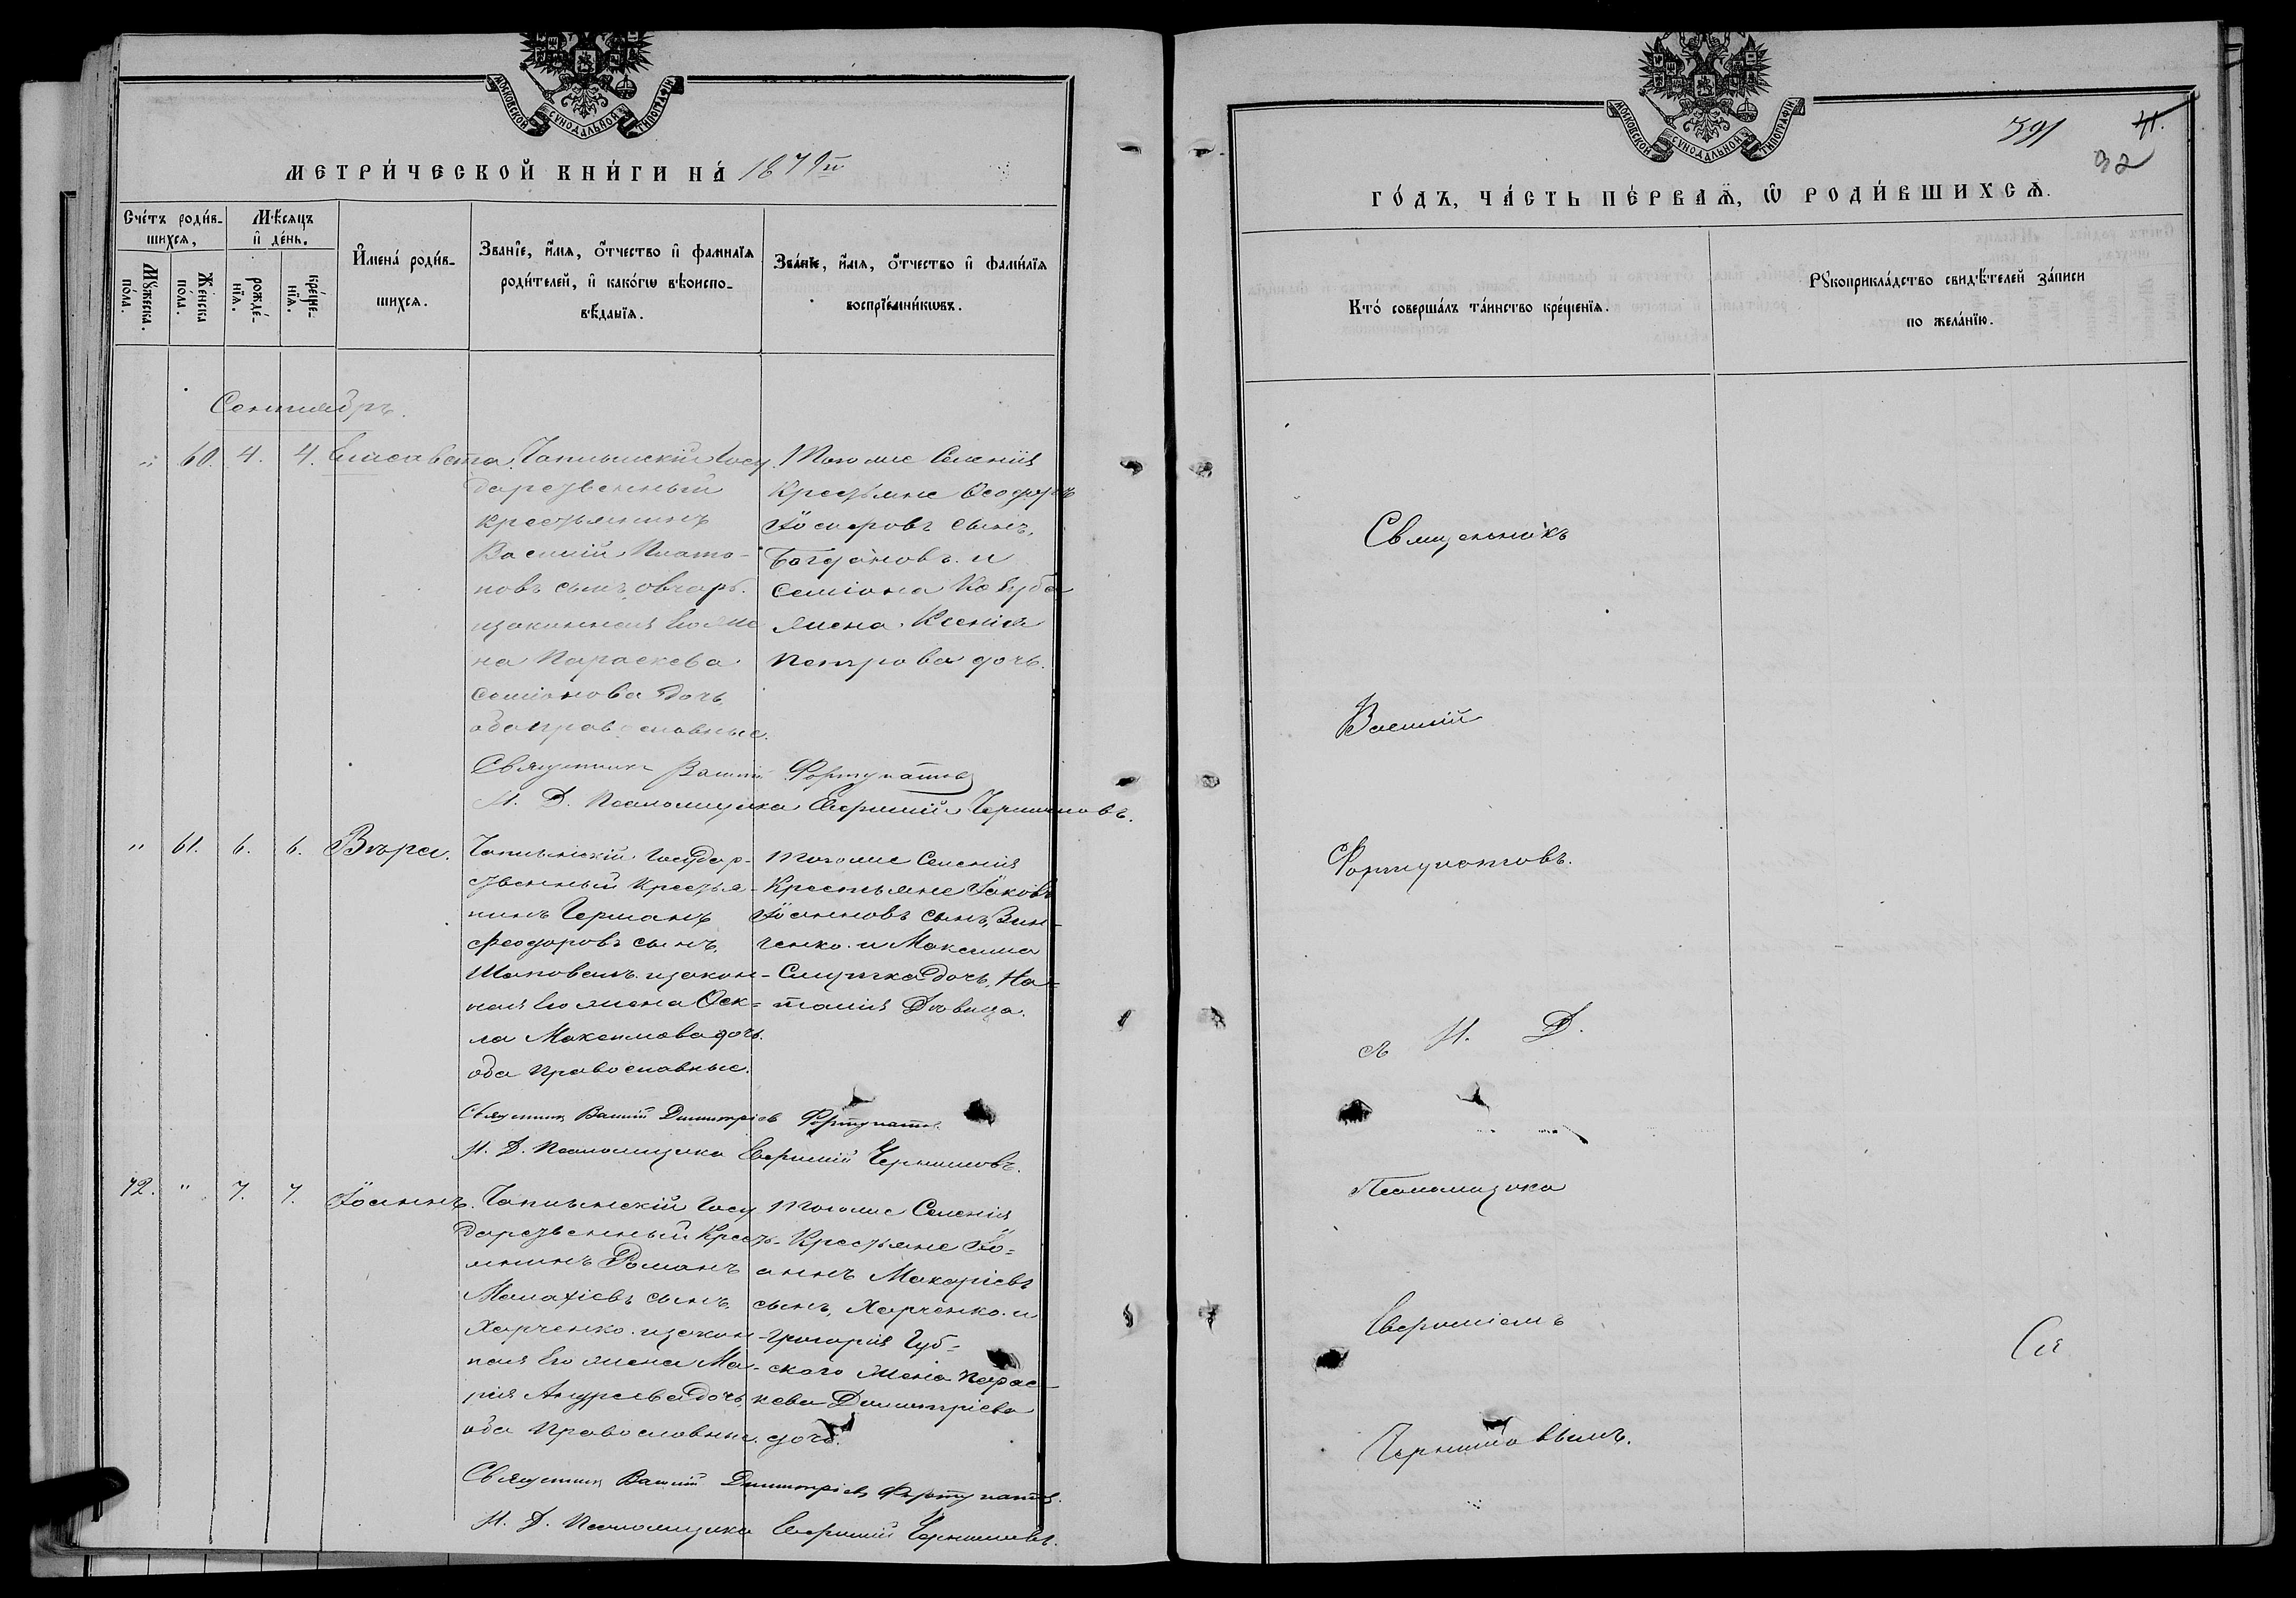 МОСКОВСКОЙ СУНОДАЛЬНОЙ ТИПОГРАФІИ
МЕТРИ́ЧЕСКОЙ КНИ́ГИ НА́ 1879й
Сче́тъ роди́в-
шихся,
Мѣ́сяцъ
и҆ де́нь.
Мꙋ́жеска.
по́ла.
Же́нска
по́ла.
рожде́-
нїя.
креще́-
нїя.
И҆мена̀ роди́в-
шихся.
Зва́нїе, и҆́мя, ѻ҆́тчество и҆ фами́лїя
роди́телей, и҆ како́гѡ вѣроиспо-
вѣ́данїя.
Зва́нїе, и҆́мя, ѻ҆́тчество и҆ фами́лїя
воспрїе́мникѡвъ.
Сентябрь.
" 60. 4. 4. Елисавета.
Чаплынскій Госу
дарственный
крестьянинъ
Василій Плато-
новъ сынъ, овчаръ.
изаконная Его же
на Параскева
Семіонова дочь
оба православные.
Тогоже Селенія
Крестьяне Ѳеодоръ
Іосифовъ сынъ,
Богдановъ. и
Семіона Кобуба
жена. Ксенія
Петрова дочь.
Священникъ Василій Фортунатовъ
И. Д. Псаломщика Евфимій Чернышовъ.
" 61. 6. 6. Вѣра.
Чаплынскій Государ-
ственный Крестья-
нинъ Германъ
Феодоровъ сынъ,
Шаповалъ. изакон-
ная Его жена Ѳек=
ла Максимова дочь.
оба Православные.
Тогоже Селенія
Крестьяне Іаковъ
Іоанновъ сынъ, Зин-
ченко. и Максима
дочь, На=
талія Дѣвица.
Священникъ Василій Димитріевъ Фортунатовъ
И. Д. Псаломщика Евфимій Чернышовъ.
72. " 7. 7. Іоаннъ.
Чаплынскій Госу
дарственный Кресть-
янинъ Романъ
Малахіевъ сынъ,
Харченко. изакон-
ная Его жена Ма-
рія Андреева дочь,
оба Православные.
Тогоже Селенія
Крестьяне Іо=
аннъ Макаріевъ
сынъ, Харченко. и
Григорія Губ=
ского жена Парас-
кева Димитріева
дочь.
Священникъ Василій Димитріевъ Фортунатовъ.
И. Д. Псаломщика Евфимій Чернышовъ.
МОСКОВСКОЙ СУНОДАЛЬНОЙ ТИПОГРАФІИ
591
41.
92
ГО́ДЪ, ЧА́СТЬ ПЕ́РВАѦ, Ѡ҆ РОДИ́ВШИХСѦ.
Кто̀ соверша́лъ та́инство креще́нїя.
Рꙋкоприкла́дство свидѣ́телей за́писи
по жела́нїю.
Священникъ
Василій
Фортунатовъ.
съ И. Д.
Псаломщика
Евфиміемъ
Чернышовымъ.